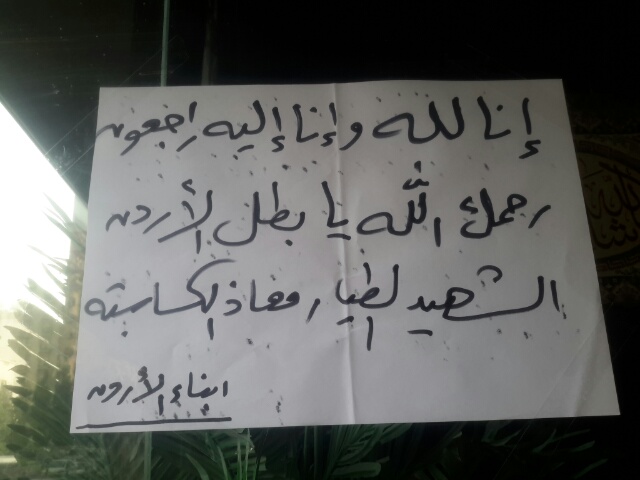 إنا لله وإنا إليه راجعون
رحمك الله يا بطل الأردن
الشهيد الطيار معاذ الكساسبة
ابناء الأردن